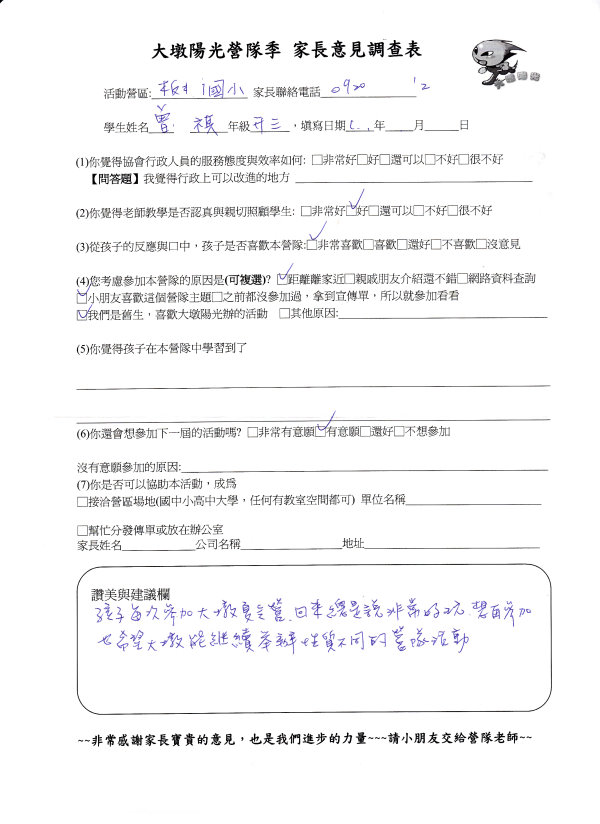 大墩陽光營隊季 家長意見調查表
活動營區: 國小 家長聯絡電話 0920 '2
學生姓名 曾 祺 年級 升三 ，填寫日期 年 月 日
(1)你覺得協會行政人員的服務態度與效率如何: □非常好□好□還可以□不好□很不好
【問答題】我覺得行政上可以改進的地方
(2)你覺得老師教學是否認真與親切照顧學生: □非常好☑好□還可以□不好□很不好
(3)從孩子的反應與口中，孩子是否喜歡本營隊:☑非常喜歡□喜歡□還好□不喜歡□沒意見
(4)您考慮參加本營隊的原因是(可複選)? ☑距離離家近□親戚朋友介紹還不錯□網路資料查詢
☑小朋友喜歡這個營隊主題□之前都沒參加過，拿到宣傳單，所以就參加看看
☑我們是舊生，喜歡大墩陽光辦的活動 □其他原因:
(5)你覺得孩子在本營隊中學習到了
(6)你還會想參加下一屆的活動嗎? □非常有意願☑有意願□還好□不想參加
沒有意願參加的原因:
(7)你是否可以協助本活動，成為
□接洽營區場地(國中小高中大學，任何有教室空間都可) 單位名稱
□幫忙分發傳單或放在辦公室
家長姓名 公司名稱 地址
讚美與建議欄
孩子每次參加大墩夏令營，回來總是說非常好玩，想再參加
也希望大墩能繼續舉辦性質不同的營隊活動
~~非常感謝家長寶貴的意見，也是我們進步的力量~~~請小朋友交給營隊老師~~